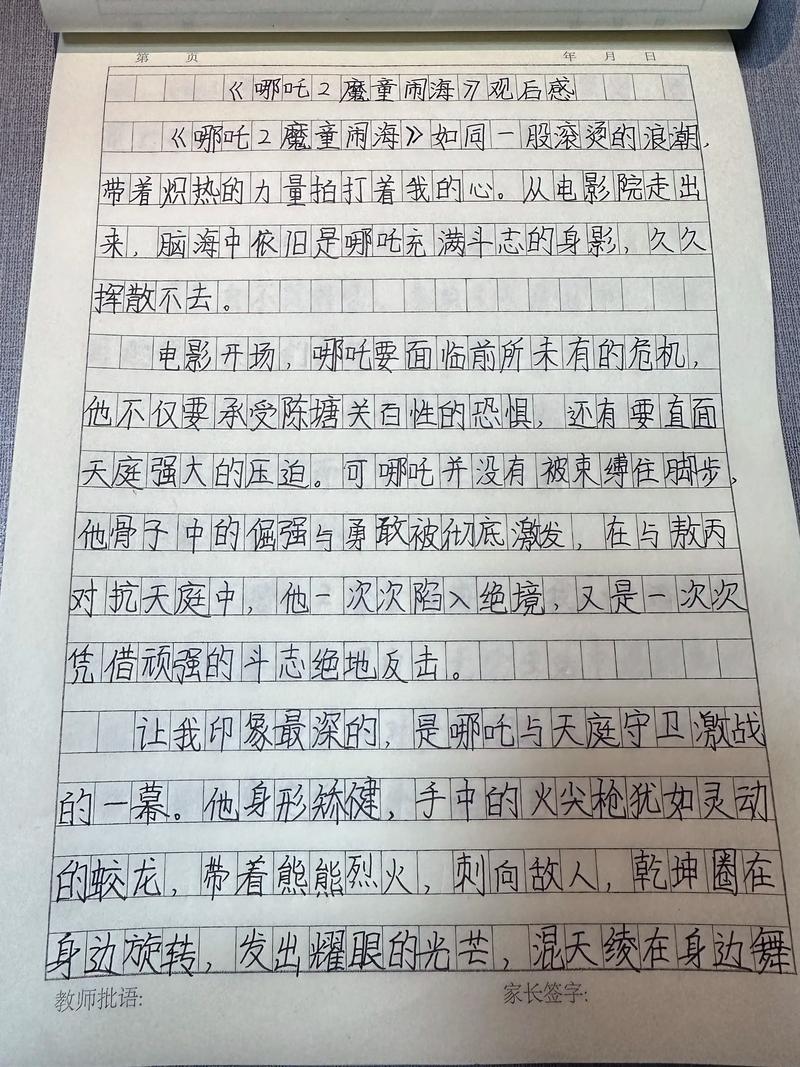 第 页 年 月 日
《哪吒2魔童闹海》观后感
《哪吒2魔童闹海》如同一股滚烫的浪潮，
带着炽热的力量拍打着我的心。从电影院走出
来，脑海中依旧是哪吒充满斗志的身影，久久
挥散不去。
电影开场，哪吒要面临前所未有的危机，
他不仅要承受陈塘关百性的恐惧，还有要直面
天庭强大的压迫。可哪吒并没有被束缚住脚步，
他骨子中的倔强与勇敢被彻底激发，在与敖丙
对抗天庭中，他一次次陷入绝境，又是一次次
凭借顽强的斗志绝地反击。
让我印象最深的，是哪吒与天庭守卫激战
的一幕。他身形矫健，手中的火尖枪犹如灵动
的蛟龙，带着熊熊烈火，刺向敌人，乾坤圈在
身边旋转，发出耀眼的光芒，混天绫在身边舞
教师批语: 家长签字: